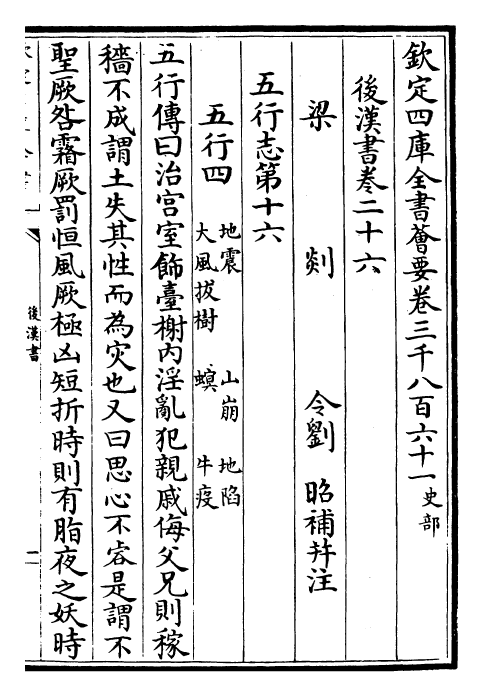 欽定四庫全書薈要卷三千八百六十一史部
後漢書卷二十六
梁 剡 令劉 昭補幷注
五行志第十六
五行四 地震 山崩 地陷
大風拔樹 螟 牛疫
五行傳曰治宮室飾臺榭內淫亂犯親戚侮父兄則稼
穡不成謂土失其性而為灾也又曰思心不容是謂不
聖厥咎霧厥罰恒風厥極凶短折時則有脂夜之妖時
後漢書
二